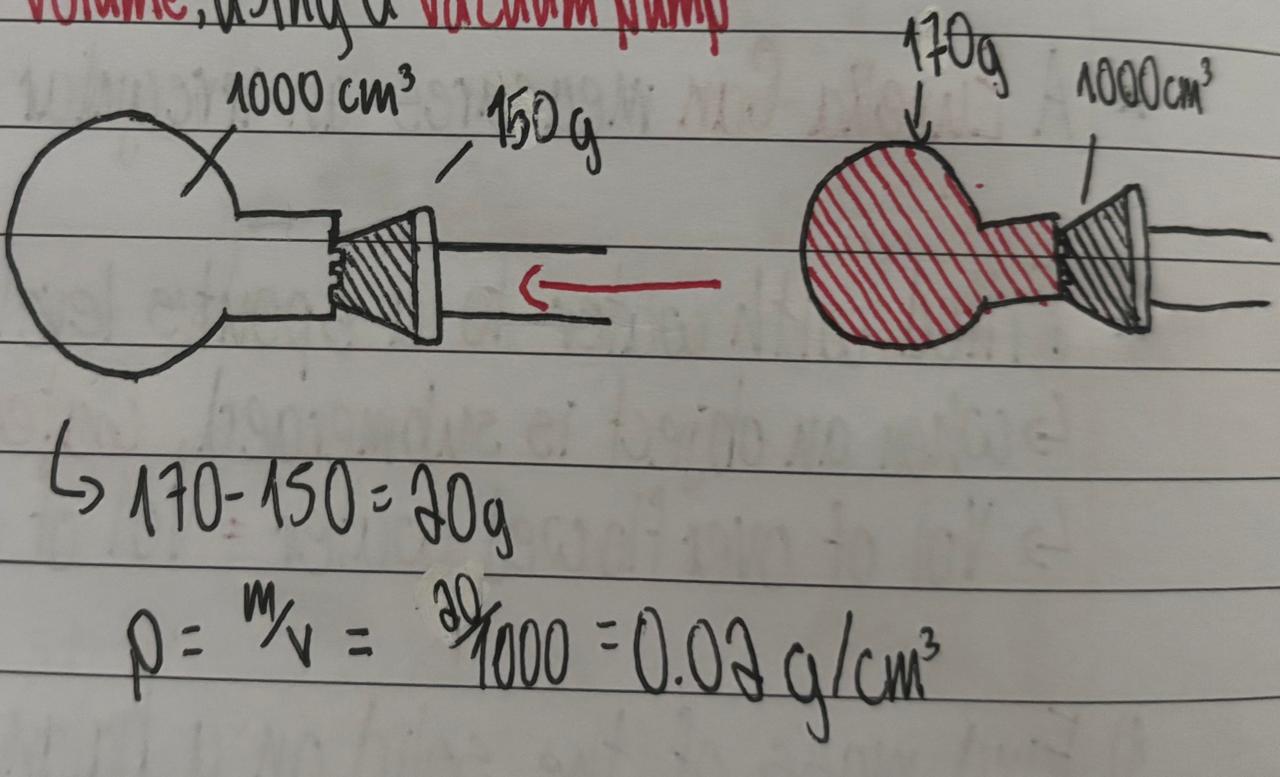 volume, using a vacuum pump
1000 cm³
150g
170g
1000cm³
↳ 170-150=20g
ρ = m/v = 20/1000 = 0.02 g/cm³